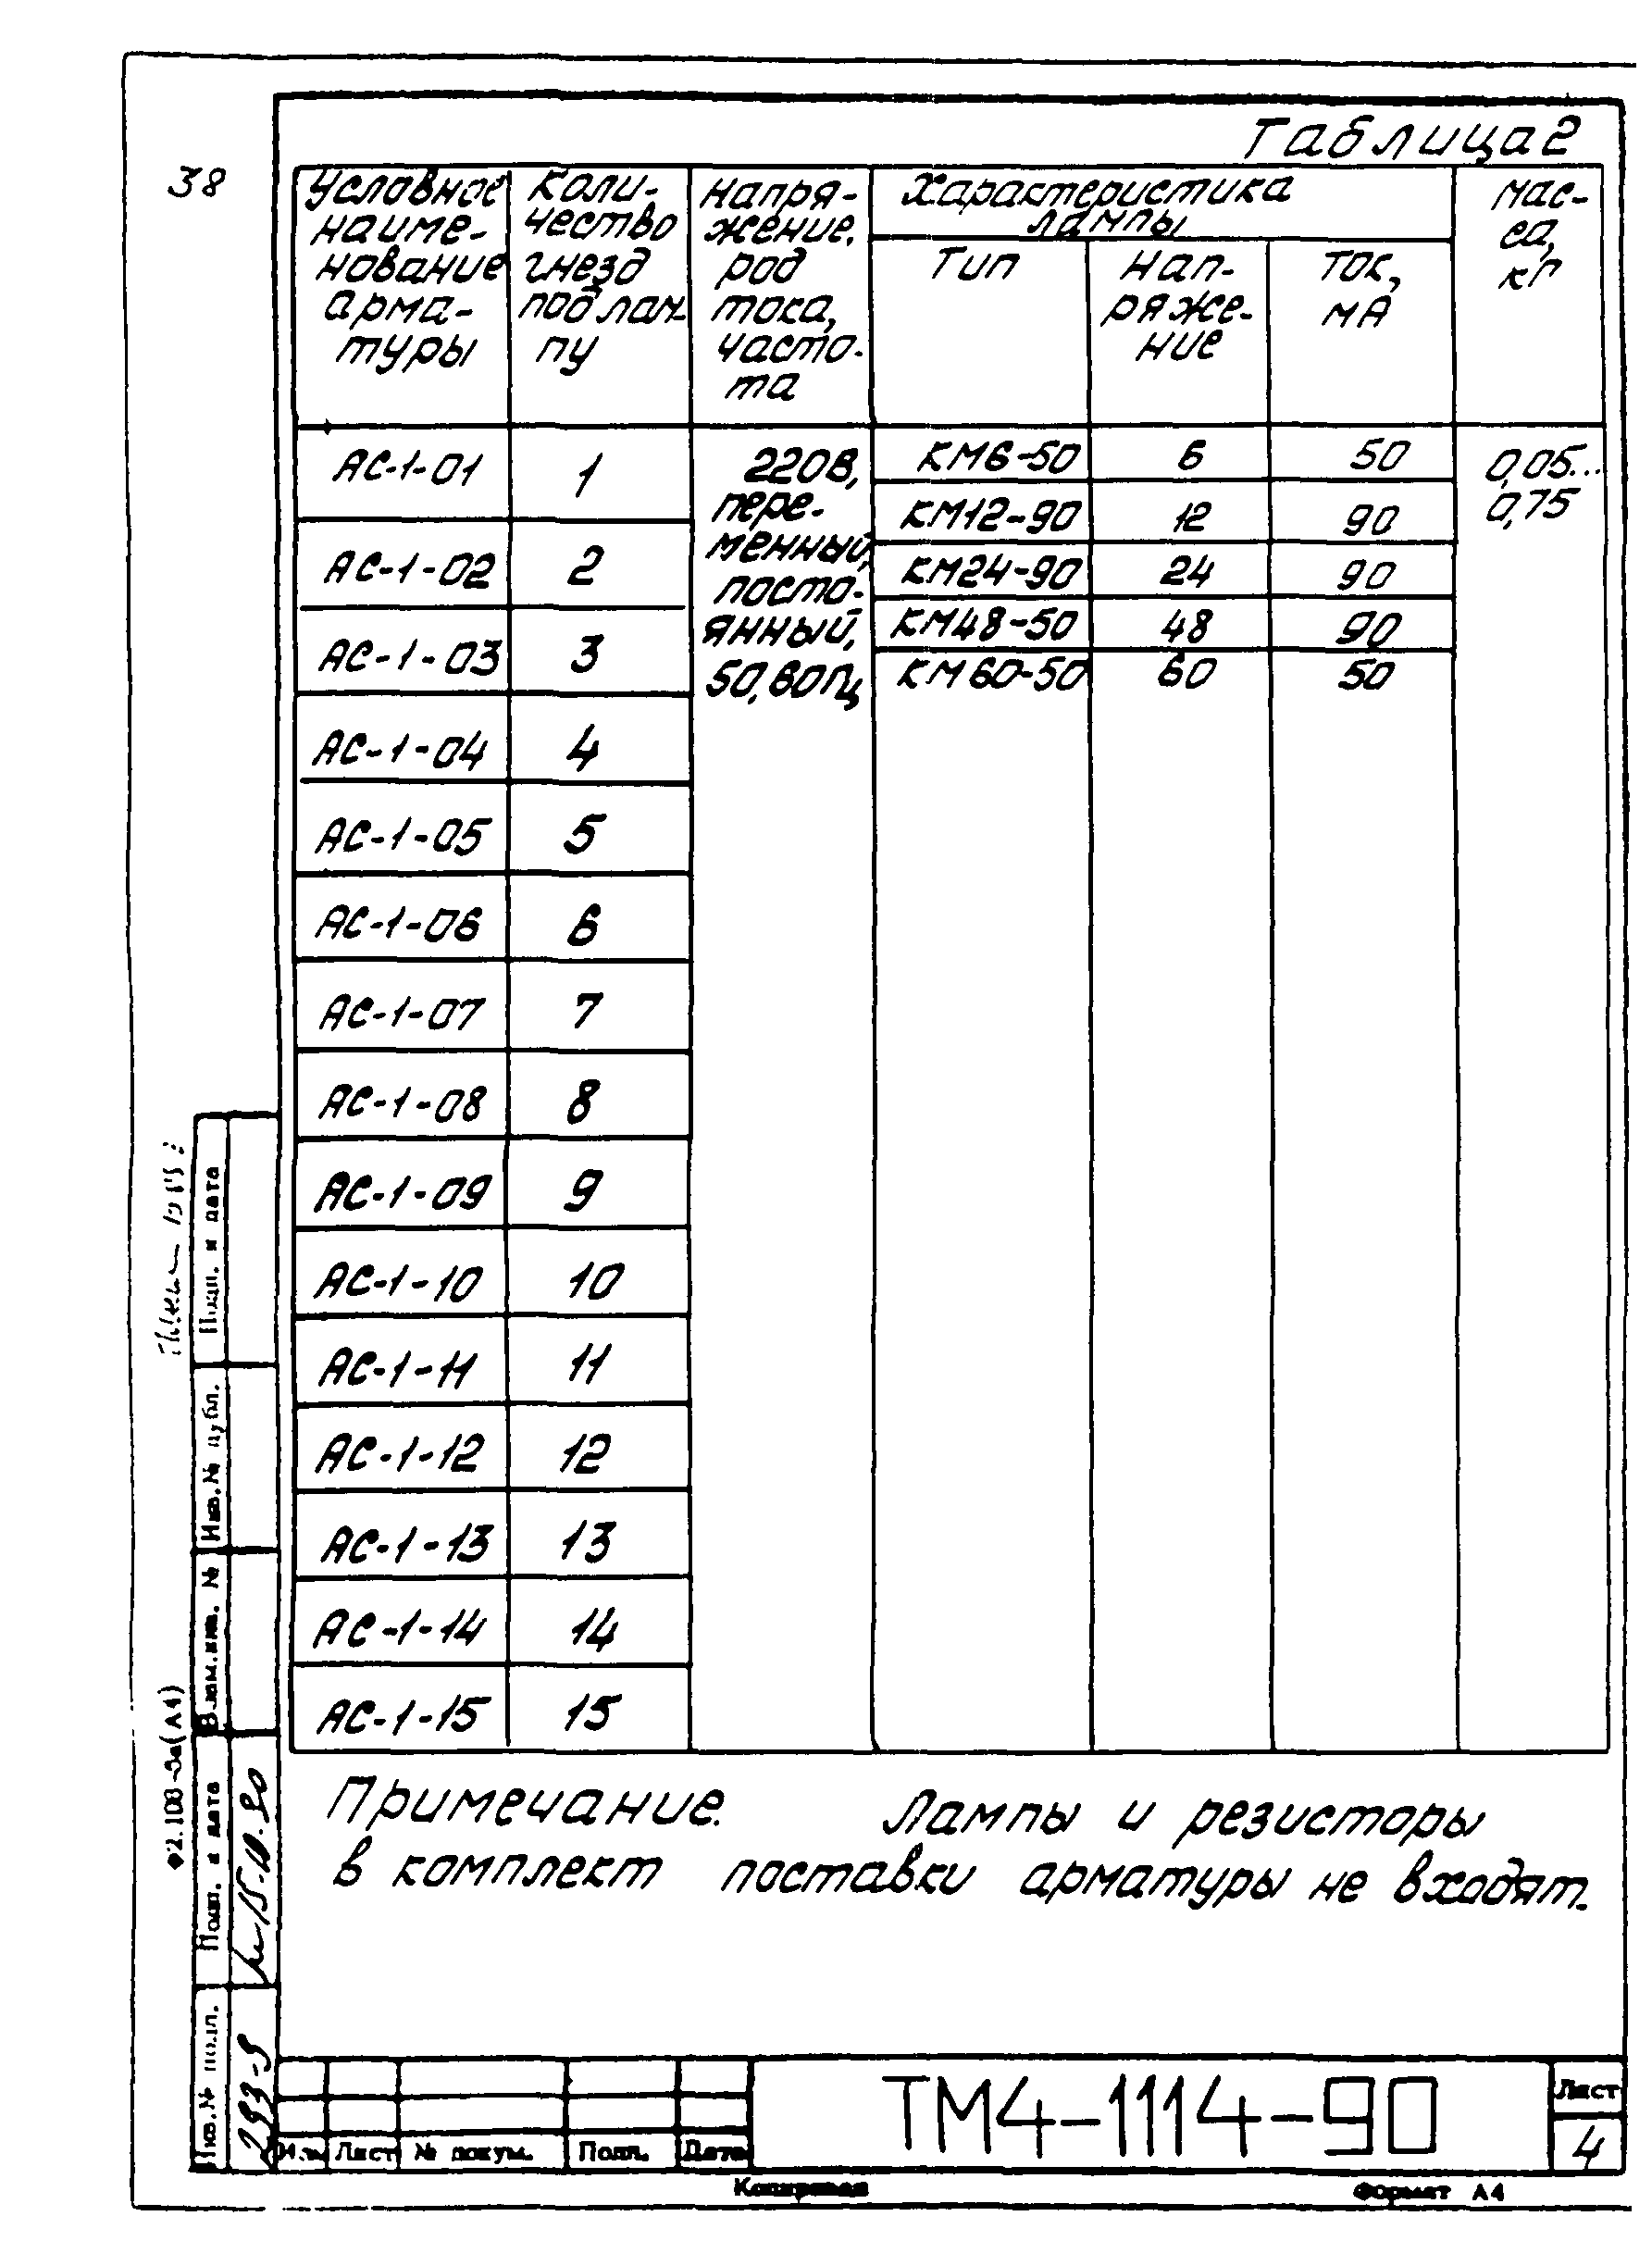 Таблица 2
38
Условное
наиме-
нование
арма-
туры
Коли-
чество
гнезд
под лам-
пу
Напря-
жение,
род
тока,
часто-
та
Характеристика
лампы
Тип
Нап-
ряже-
ние
Ток,
мА
Мас-
са,
кг
АС-1-01 1
АС-1-02 2
АС-1-03 3
АС-1-04 4
АС-1-05 5
АС-1-06 6
АС-1-07 7
АС-1-08 8
АС-1-09 9
АС-1-10 10
АС-1-11 11
АС-1-12 12
АС-1-13 13
АС-1-14 14
АС-1-15 15
220В,
пере-
менный,
посто-
янный,
50,60Гц
КМ6-50 6 50
КМ12-90 12 90
КМ24-90 24 90
КМ48-50 48 90
КМ60-50 60 50
0,05...
0,75
Примечание. Лампы и резисторы
в комплект поставки арматуры не входят.
Подп. и дата
Инв.№ дубл.
Взам.инв. №
Подп. и дата
15-10-90
Инв.№ подл.
293-9
Ф2.108-5а(А4)
Изм Лист № докум. Подп. Дата
ТМ4-1114-90
Лист
4
Копировал
Формат А4